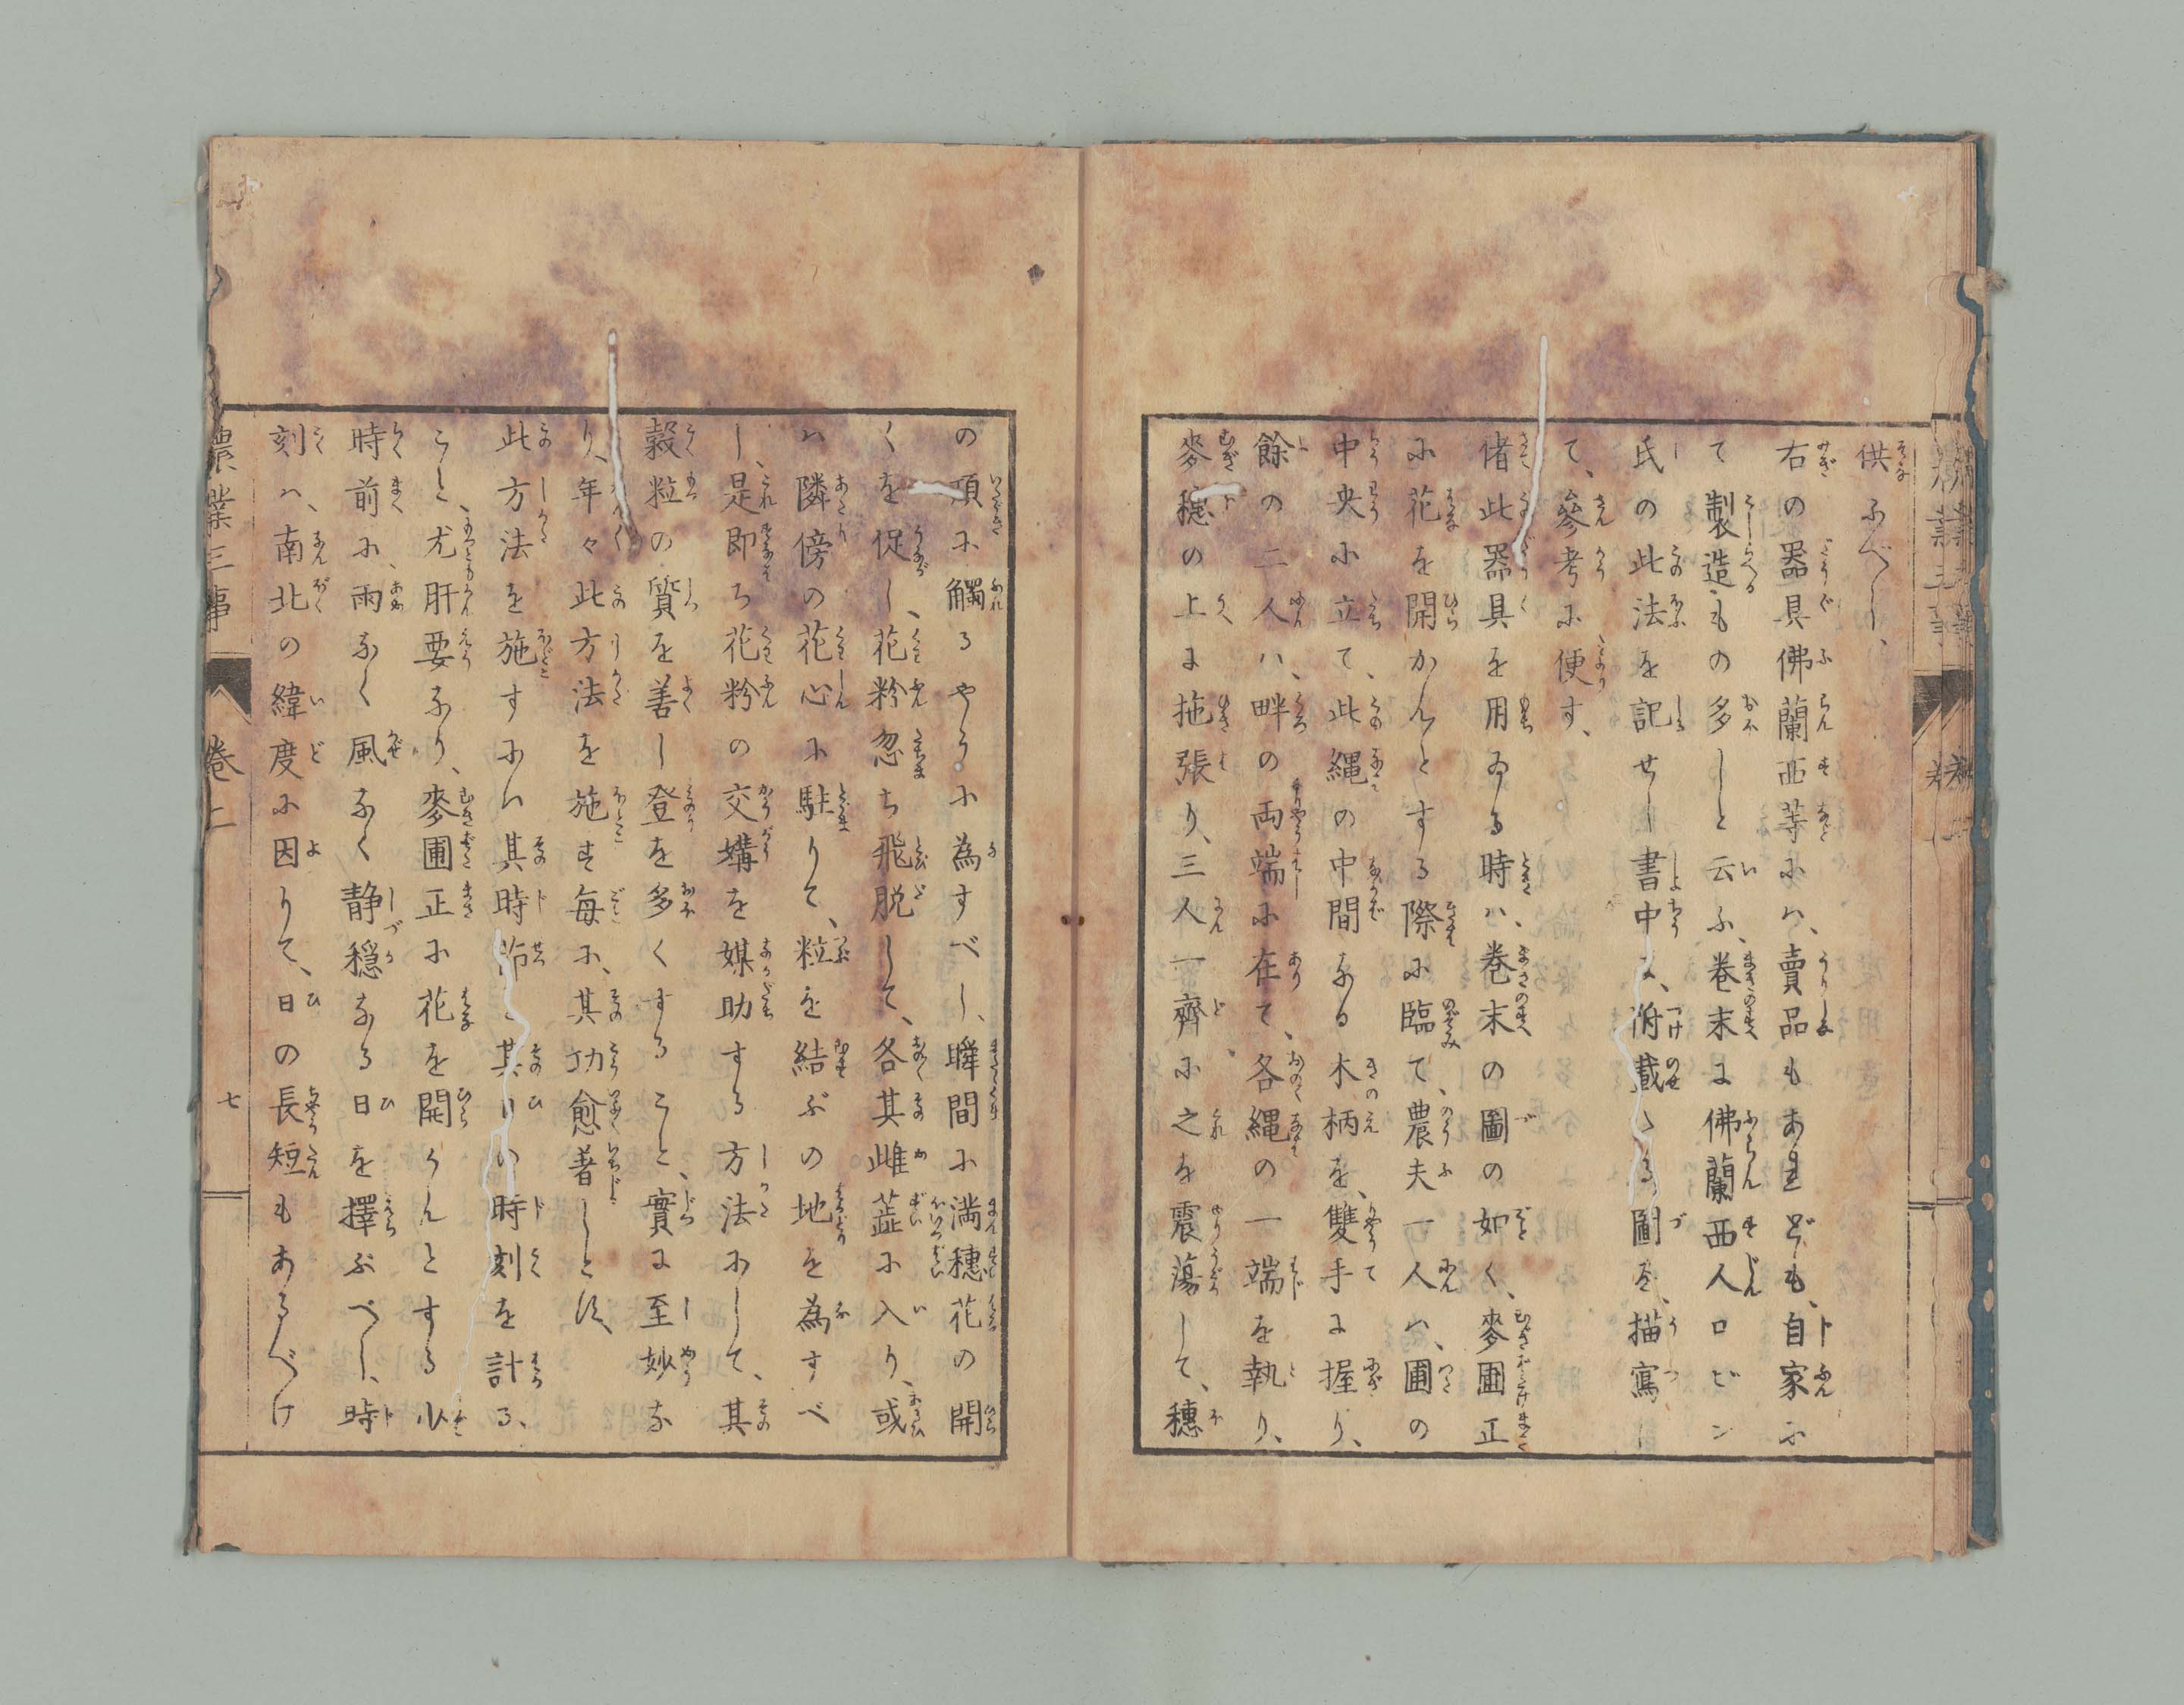 供ふべし、
右の器具佛蘭西等にハ、賣品もあれども、自家に
て製造もの多しと云ふ、巻末に佛蘭西人ロビン
氏の此法を記せし書中に、附載たる圖を、描寫し
て、參考に便す、
偖此器具を用ゐる時ハ、巻末の圖の如く、麥圃正
に花を開かんとする際に臨て、農夫一人ハ、圃の
中央に立て、此縄の中間なる木柄を、雙手に握り、
餘の二人ハ、畔の両端に在て、各縄の一端を執り、
麥穗の上に拖張り、三人一齊に之を震蕩して、穗
の頂に觸るやうに為すべし、瞬間に満穗花の開
くを促し、花粉忽ち飛脱して、各其雌蕋に入り、或
ハ隣傍の花心に駐りて、粒を結ぶの地を為すべ
し、是即ち花粉の交媾を媒助する方法にして、其
穀粒の質を善し登を多くすること、實に至妙な
り、年々此方法を施す毎に、其功愈著しと須、
此方法を施すにハ其時節と其日の時刻を計る、
こと、尤肝要なり、麥圃正に花を開かんとする少
時前に、雨なく風なく静穏なる日を擇ぶべし、時
刻ハ、南北の緯度に因りて、日の長短もあるべけ
農業三事
巻上
七